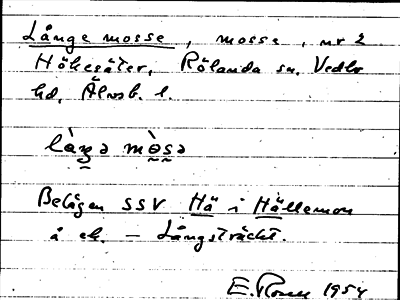 Långe mosse, mosse, nr 2
Hökesäter, Rölanda sn, Vedbo
hd, Älvsb. l.
làŋə mòsə
Belägen SSV Hä i Hällemon
å ek. – Långsträckt.
E. 1954